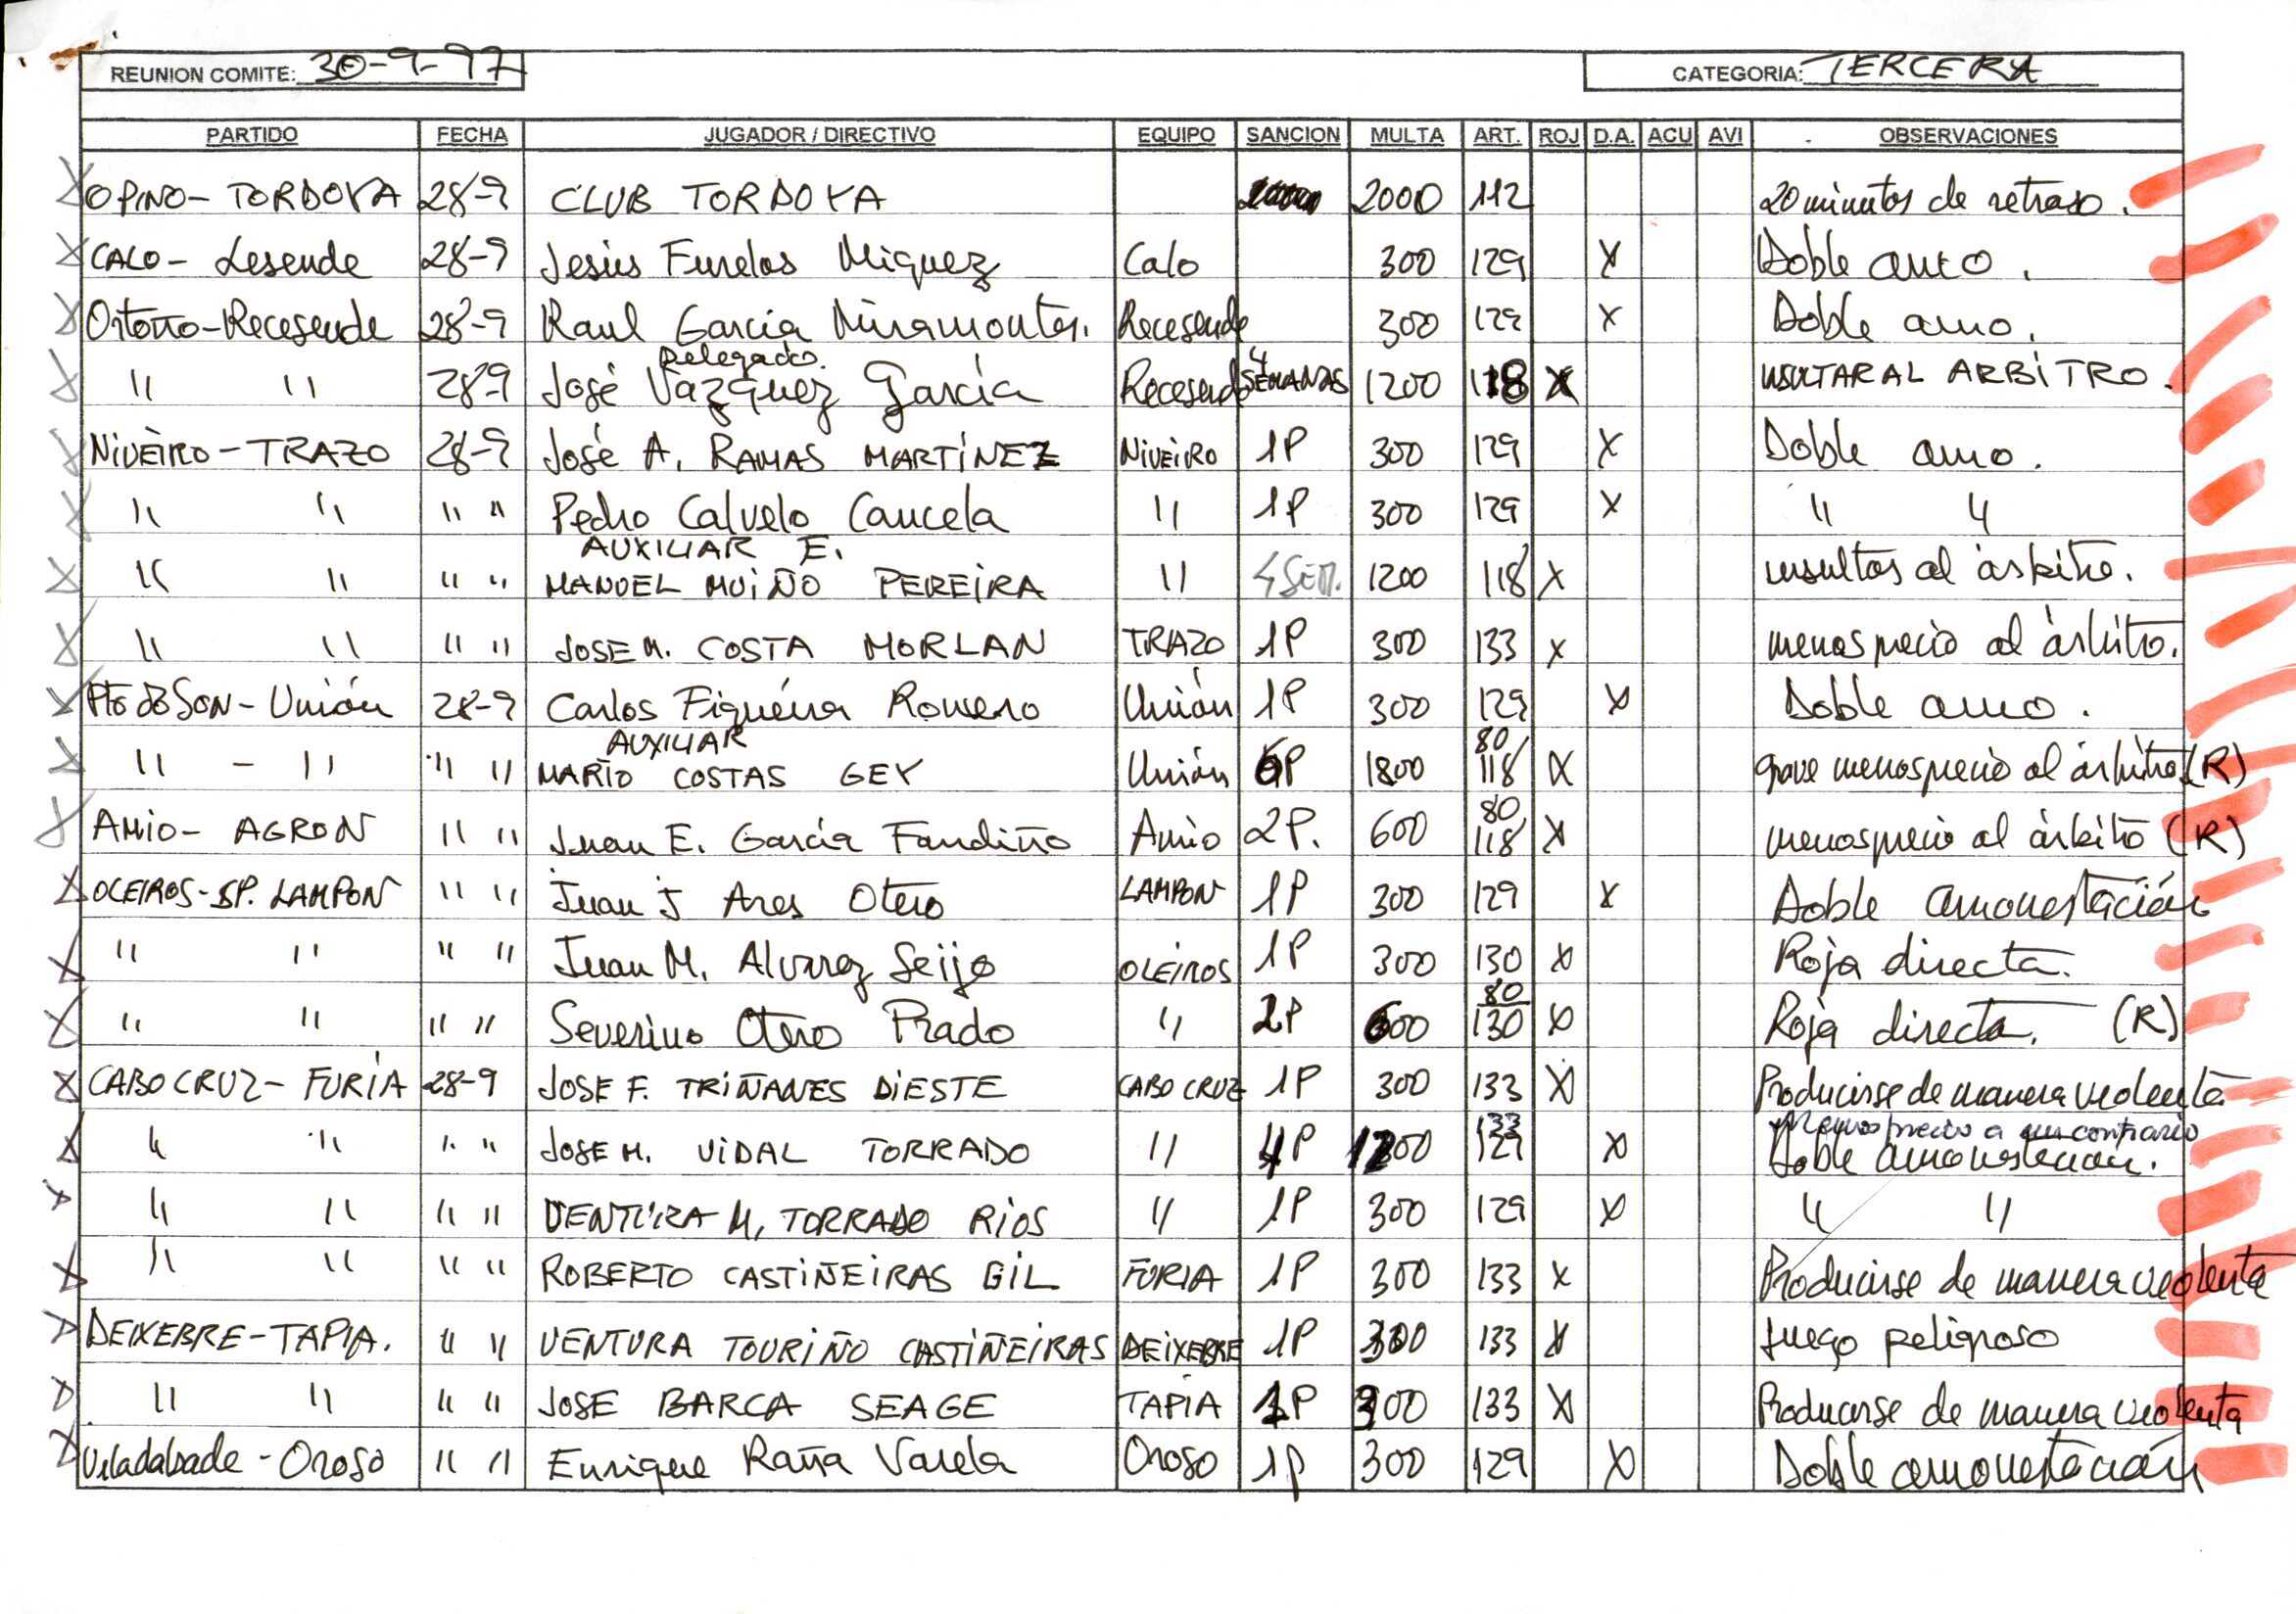 REUNION COMITE: 30-9-97 CATEGORIA: TERCERA
PARTIDO FECHA JUGADOR / DIRECTIVO EQUIPO SANCION MULTA ART. ROJ D.A. ACU AVI OBSERVACIONES
O PINO - TORDOYA 28-9 CLUB TORDOYA 2000 112 20 minutos de retraso.
CALO - Lesende 28-9 Jesús Furelos Miguez Calo 300 129 X Doble amo.
Ortoño - Recesende 28-9 Raul García Miramontes. Recesende 300 129 X Doble amo.
Delegado. 4
" " 28-9 José Vazquez García Recesende SEMANAS 1200 118 X INSULTAR AL ARBITRO.
NIVEIRO - TRAZO 28-9 José A. RAMAS MARTÍNEZ NIVEIRO 1P 300 129 X Doble amo.
" " " " Pedro Calvelo Cancela " 1P 300 129 X " "
AUXILIAR E.
" " " " MANUEL MUIÑO PEREIRA " 4 SEM. 1200 118 X insultos al árbitro.
" " " " JOSE M. COSTA MORLAN TRAZO 1P 300 133 X menosprecio al árbitro.
Pto do SON - Unión 28-9 Carlos Figueira Romero Unión 1P 300 129 X Doble amo.
AUXILIAR 80
" - " " " MARIO COSTAS GEY Unión 6P 1800 118 X grave menosprecio al árbitro (R)
80
AMIO - AGRON " " Juan E. García Fandiño Amio 2P. 600 118 X menosprecio al árbitro (R)
OLEIROS - SP. LAMPON " " Juan J Ares Otero LAMPON 1P 300 129 X Doble amonestación
" " " " Juan M. Alvarez Seijo OLEIROS 1P 300 130 X Roja directa.
80
" " " " Severino Otero Prado " 2P 600 130 X Roja directa. (R)
CABO CRUZ - FURIA 28-9 JOSE F. TRIÑANES DIESTE CABO CRUZ 1P 300 133 X Producirse de manera violenta
133 Menosprecio a un contrario
" " " " JOSE M. VIDAL TORRADO " 4P 1200 129 X Doble amonestación.
" " " " VENTURA M. TORRADO RIOS " 1P 300 129 X " "
" " " " ROBERTO CASTIÑEIRAS GIL FURIA 1P 300 133 X Producirse de manera violenta
DEIXEBRE - TAPIA. " " VENTURA TOURIÑO CASTIÑEIRAS DEIXEBRE 1P 300 133 X Juego peligroso
" " " " JOSE BARCA SEAGE TAPIA 1P 300 133 X Producirse de manera violenta
Viladabade - Oroso " " Enrique Raña Varela Oroso 1P 300 129 X Doble amonestación